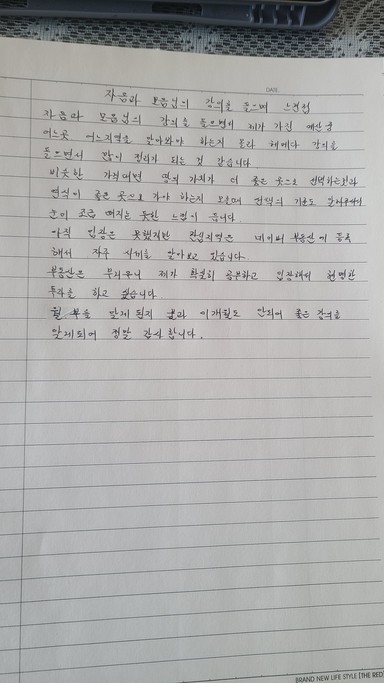 DATE
자음과 모음님의 강의을 들으며 느낀점
자음과 모음님의 강의을 들으면서 제가 가진 예산급
어느곳 어느지역을 알아봐야 하는지 몰라 헤메다 강의을
들으면서 많이 정리가 되는 것 같습니다
비슷한 가격대면 땅의 가치가 더 좋은 곳으로 선택하는것과
연식이 좋은 곳으로 가야 하는지 보을때 선택의 기준도 알아두면서
눈이 조금 떠지는 듯한 느낌이 듭니다.
아직 임장은 못했지만 관심지역은 네이버 부동산에 등록
해서 자주 시세을 알아보고 있습니다.
부동산은 무지하니 제가 확실히 공부하고 임장해서 현명한
투자을 하고 싶습니다.
월부을 알게 된지 불과 이개월도 안되어 좋은 강의을
알게되어 정말 감사합니다.
BRAND NEW LIFE STYLE [THE RED